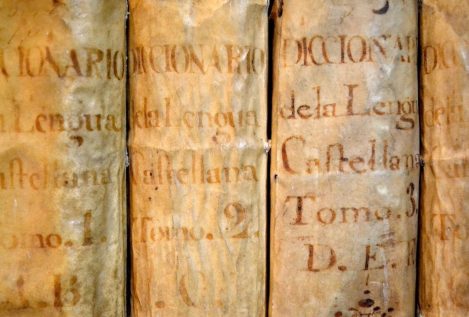 CIONARIO
a Lengua
astellana
omo. 1.
B
DICCIONARIO
de la Lengua
Castellana
Tomo. 2.
C.
DICCIONAR
de la Lengu
Castellana
Tomo. 3.
D. E.
DIC
de la